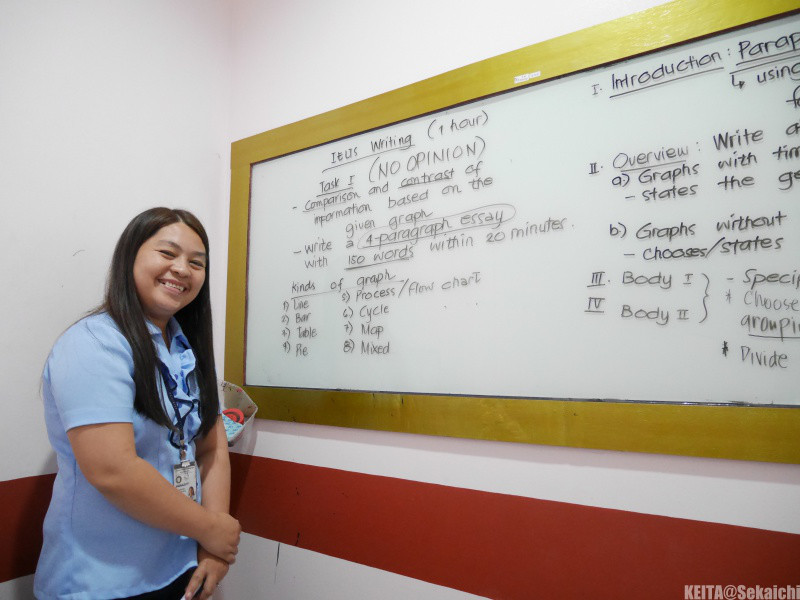 IELTS Writing (1 hour)
Task I (NO OPINION)
- Comparison and contrast of
information based on the
given graph
- Write a 4-paragraph essay
with 150 words within 20 minutes.
Kinds of graph
1) Line
2) Bar
3) Table
4) Pie
5) Process/flow chart
6) Cycle
7) Map
8) Mixed
I. Introduction : Parap
↳ using
II. Overview : Write a
a) Graphs with tim
- states the ge
b) Graphs without
- chooses/states
III. Body I
IV Body II
- Specif
* Choose
groupin
* Divide
KEITA@Sekaichi